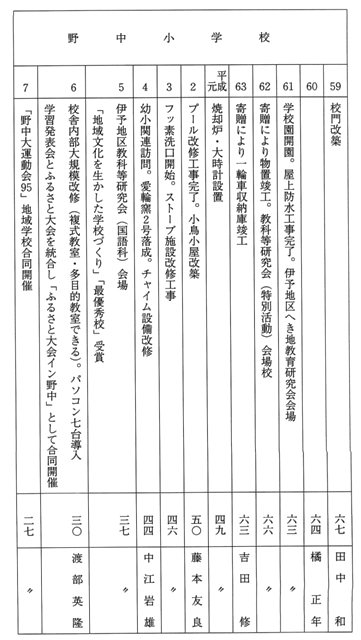 野中小学校
59 校門改築 六七 田中和
60 六四 橘正年
61 学校園開園。屋上防水工事完了。伊予地区へき地教育研究会会場 六三 〃
62 寄贈により物置竣工。教科等研究会（特別活動）会場校 六六 〃
63 寄贈により一輪車収納庫竣工 六三 吉田修
平成元 焼却炉・大時計設置 四九 〃
2 プール改修工事完了。小鳥小屋改築 五〇 藤本友良
3 フッ素洗口開始。ストーブ施設改修工事 四六 〃
4 幼小関連訪問。愛輪窯2号落成。チャイム設備改修 四四 中江岩雄
5 伊予地区教科等研究会（国語科）会場
「地域文化を生かした学校づくり」「最優秀校」受賞 三七 〃
6 校舎内部大規模改修（複式教室・多目的教室できる）。パソコン七台導入
学習発表会とふるさと大会を統合し「ふるさと大会イン野中」として合同開催 三〇 渡部英隆
7 「野中大運動会95」地域学校合同開催 二七 〃